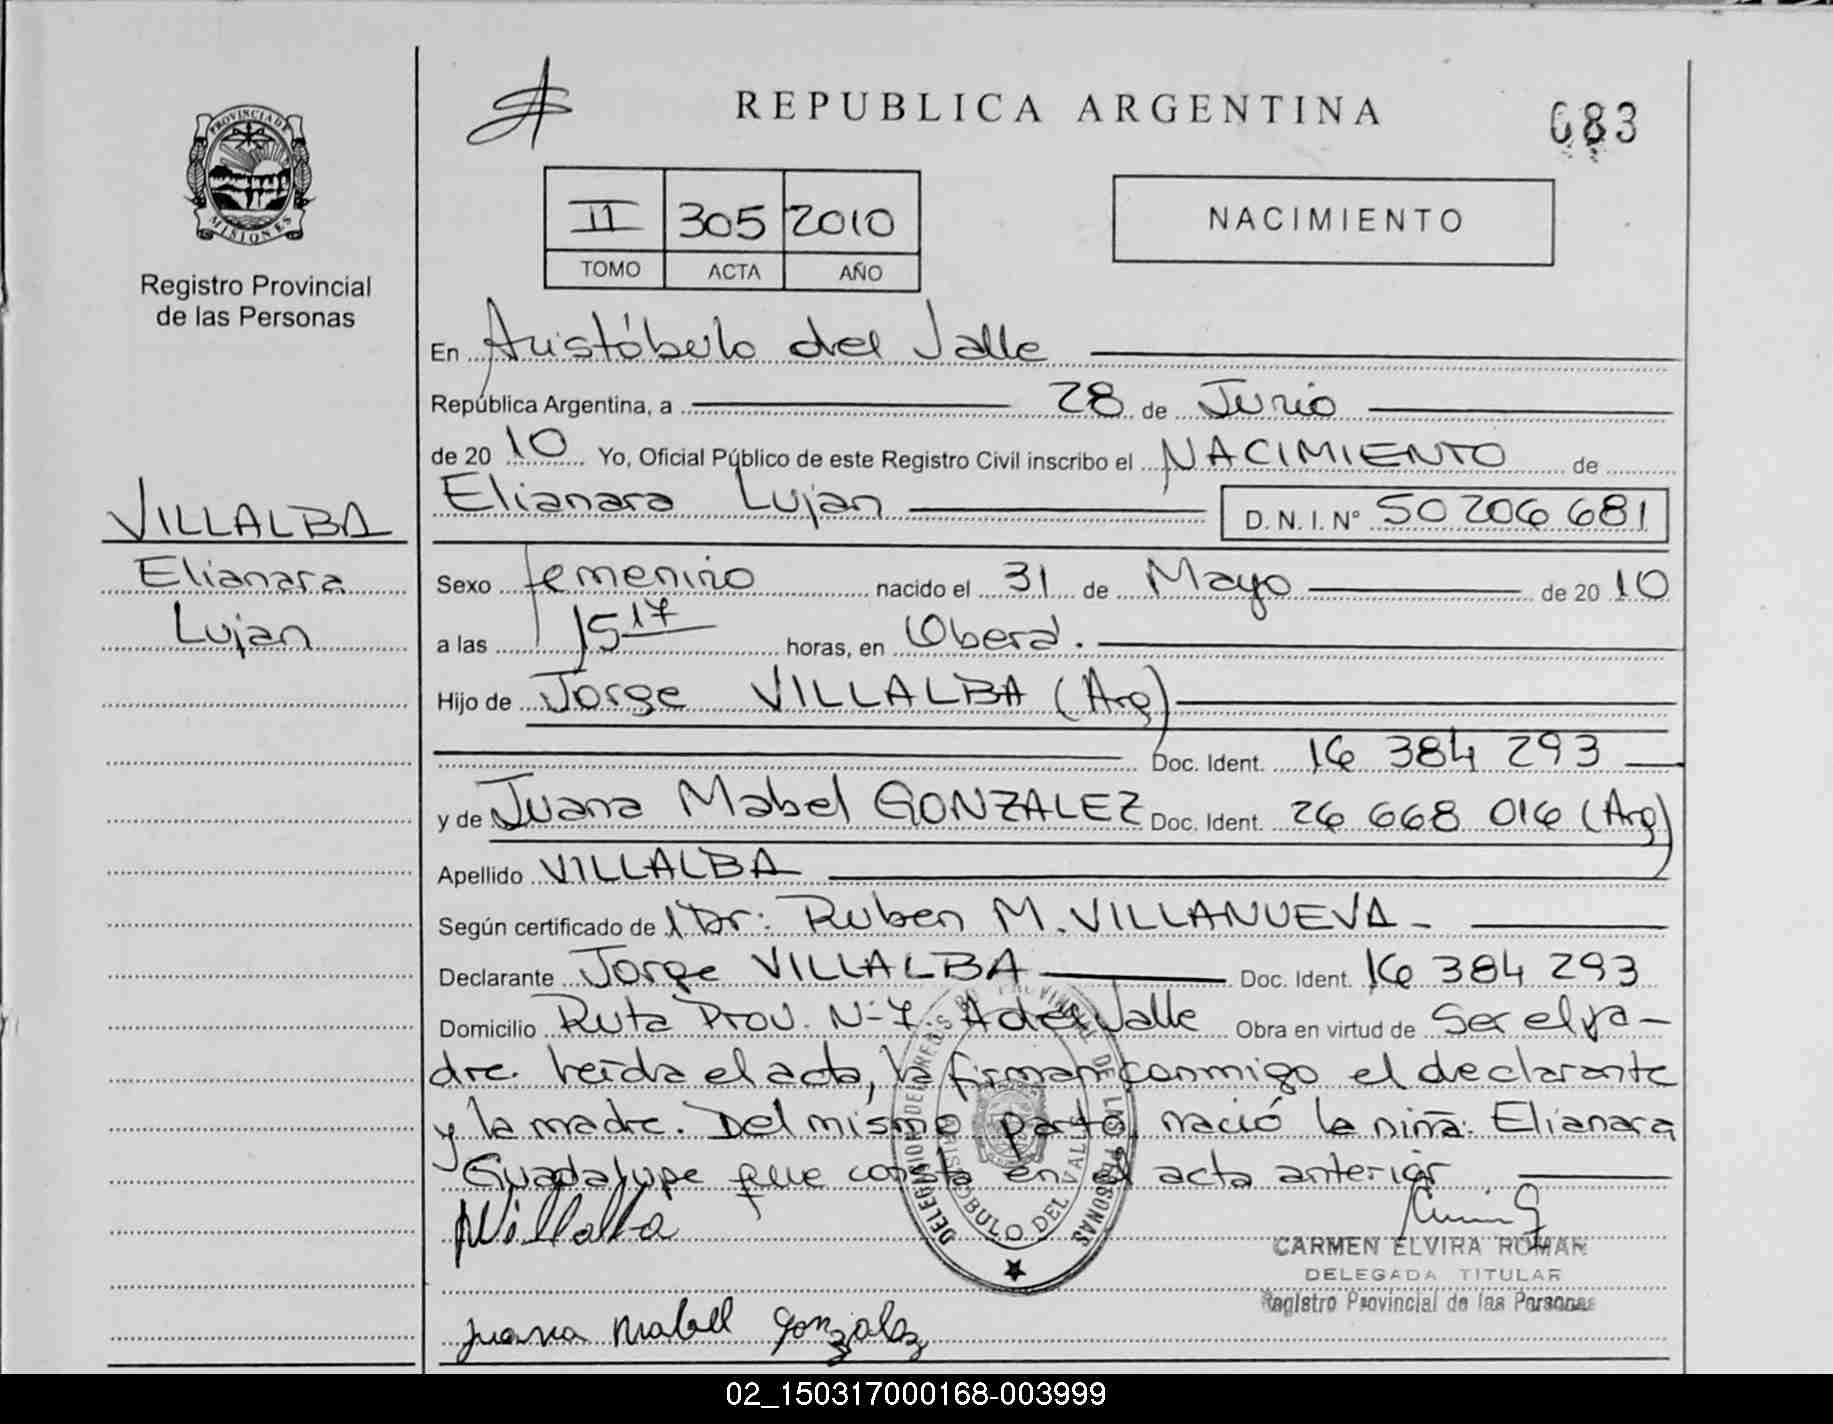 REPUBLICA ARGENTINA
083
PROVINCIA DE
MISIONES
Registro Provincial
de las Personas
II 305 2010
TOMO ACTA AÑO
NACIMIENTO
En Aristóbulo del Valle
República Argentina, a 28 de Junio
de 20 10 Yo, Oficial Público de este Registro Civil inscribo el NACIMIENTO de
Elianara Lujan D. N. I. Nº 50 206 681
VILLALBA
Elianara
Lujan
Sexo femenino nacido el 31 de Mayo de 20 10
a las 15 17 horas, en Oberá.
Hijo de Jorge VILLALBA (Arg)
Doc. Ident. 16 384 293
y de Juana Mabel GONZALEZ Doc. Ident. 26 668 016 (Arg)
Apellido VILLALBA
Según certificado de l Dr: Ruben M. VILLANUEVA -
Declarante Jorge VILLALBA Doc. Ident. 16 384 293
Domicilio Ruta Prov. N-7 A del Valle Obra en virtud de Ser el pa-
dre. Leída el acta, la firman conmigo el declarante
y la madre. Del mismo parto nació la niña: Elianara
Guadalupe que consta en el acta anterior
Villalba
DELEGACION
DE LAS PERSONAS
ARISTOBULO DEL VALLE
CARMEN ELVIRA ROMAN
DELEGADA TITULAR
Registro Provincial de las Personas
Juana Mabel Gonzalez
02_150317000168-003999